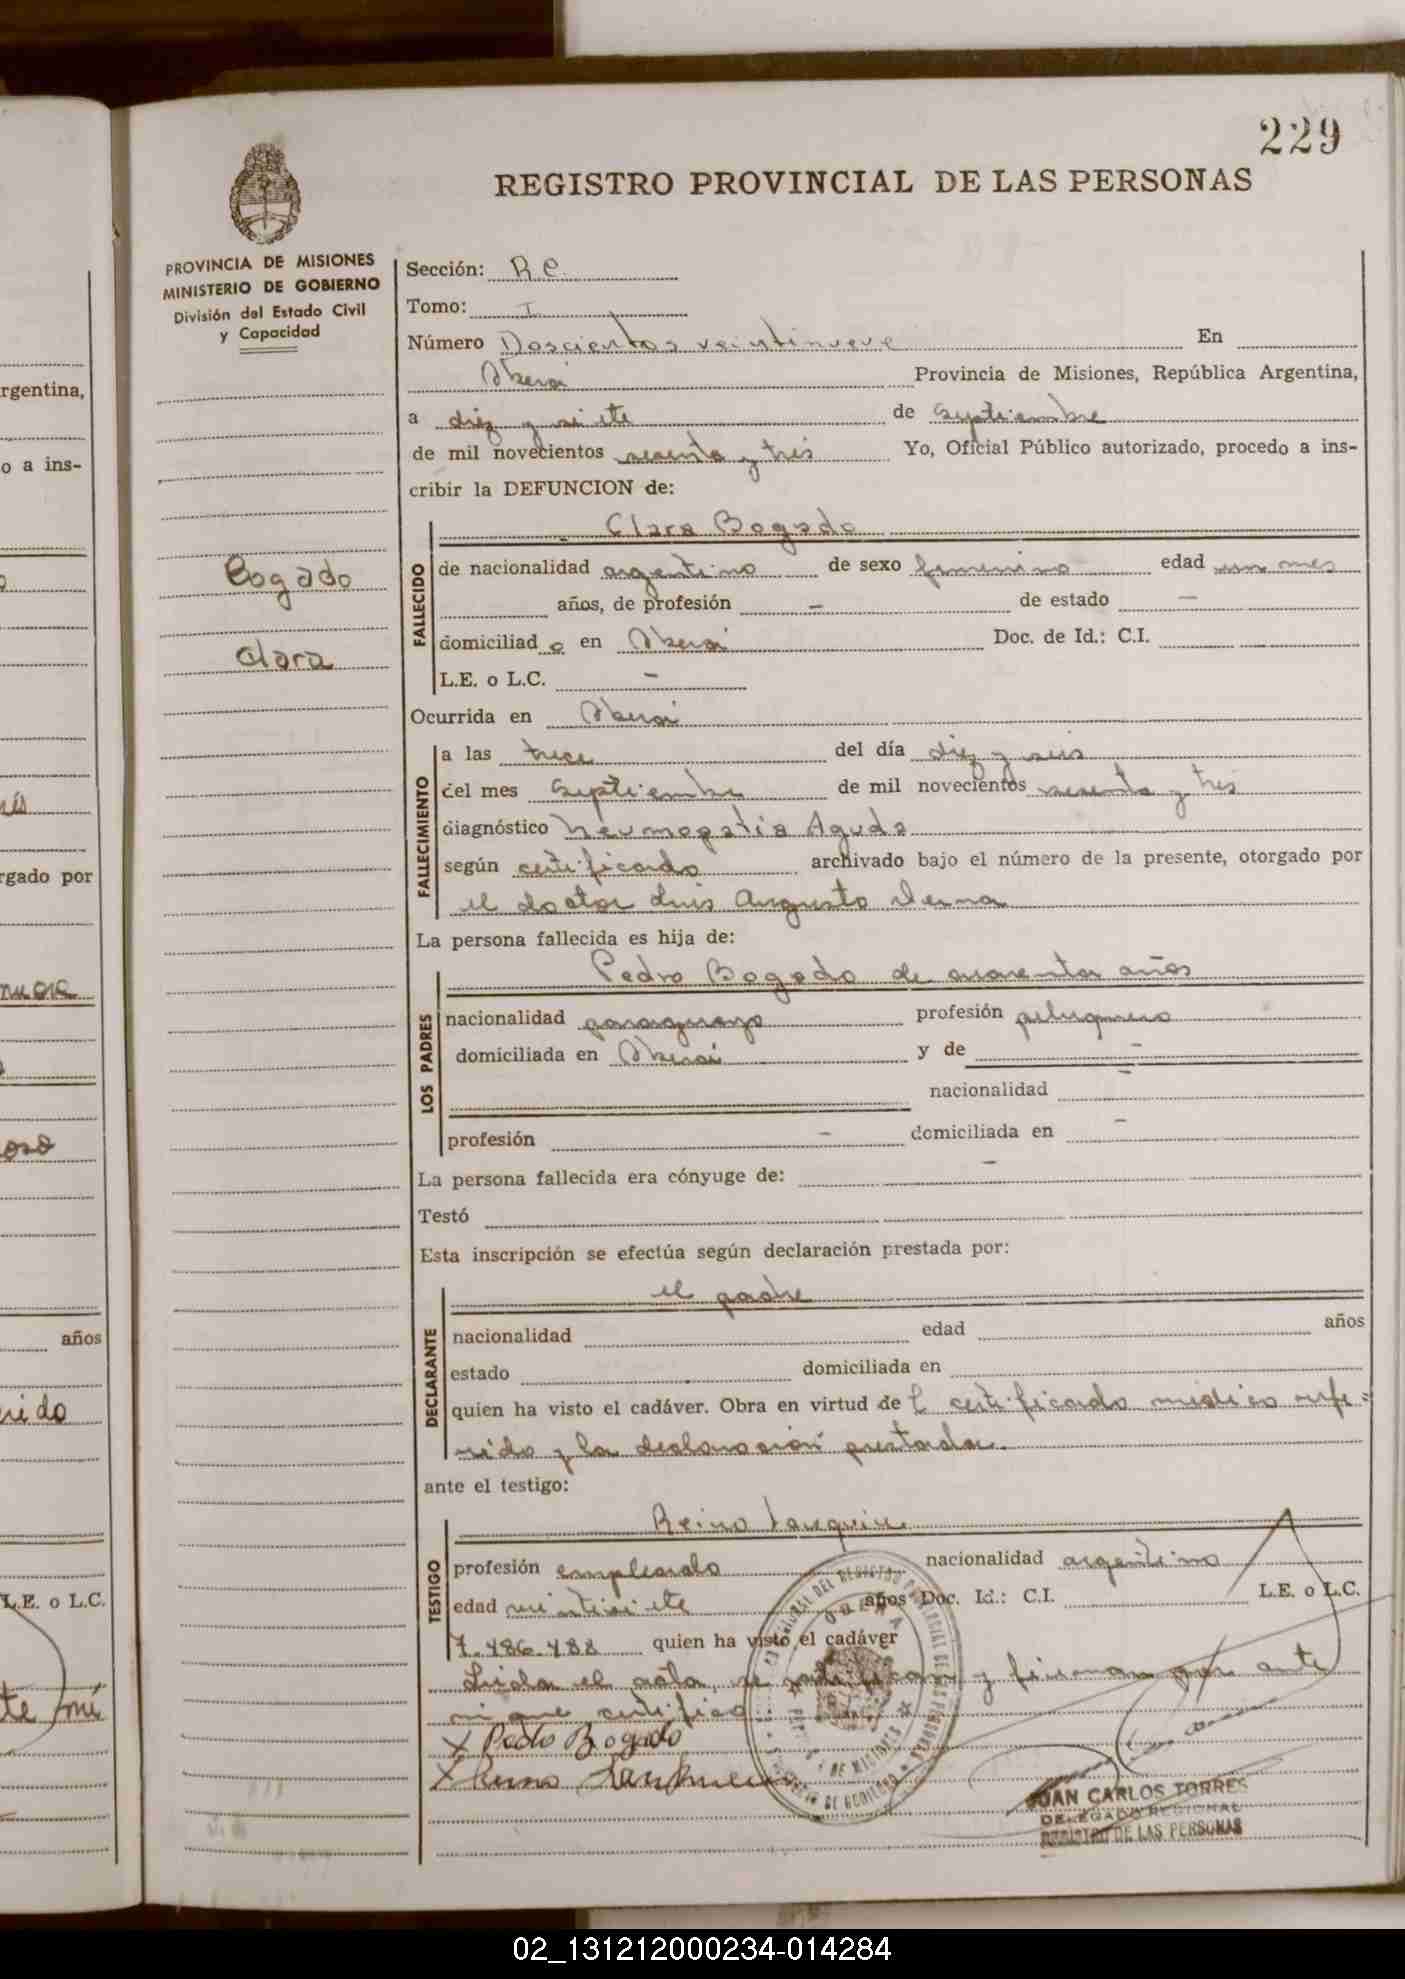 229
REGISTRO PROVINCIAL DE LAS PERSONAS
PROVINCIA DE MISIONES
MINISTERIO DE GOBIERNO
División del Estado Civil
y Capacidad
Bogado
Clara
Sección: R.C.
Tomo: I
Número Doscientos veintinueve En
Oberá Provincia de Misiones, República Argentina,
a diez y siete de septiembre
de mil novecientos sesenta y tres Yo, Oficial Público autorizado, procedo a ins-
cribir la DEFUNCION de:
FALLECIDO
Clara Bogado
de nacionalidad argentino de sexo femenino edad un mes
años, de profesión - de estado -
domiciliad o en Oberá Doc. de Id.: C.I.
L.E. o L.C. -
Ocurrida en Oberá
FALLECIMIENTO
a las trece del día diez y seis
del mes septiembre de mil novecientos sesenta y tres
diagnóstico Neumopatia Aguda
según certificado archivado bajo el número de la presente, otorgado por
el doctor Luis Augusto
La persona fallecida es hija de:
LOS PADRES
Pedro Bogado de cuarenta años
nacionalidad paraguayo profesión peluquero
domiciliada en Oberá y de -
nacionalidad -
profesión - domiciliada en -
La persona fallecida era cónyuge de: -
Testó
Esta inscripción se efectúa según declaración prestada por:
DECLARANTE
el padre
nacionalidad edad años
estado domiciliada en
quien ha visto el cadáver. Obra en virtud de l certificado médico refe-
rido y la declaración prestada.
ante el testigo:
TESTIGO
Reino
profesión empleado nacionalidad argentino
edad veintisiete años Doc. Id.: C.I. L.E. o L.C.
7.486.488 quien ha visto el cadáver
Leída el acta, se ratifican y firman por ante
mi que certifico
X Pedro Bogado
X
JUAN CARLOS TORRES
DELEGADO REGIONAL
REGISTRO DE LAS PERSONAS
rgentina,
o a ins-
rgado por
años
L.E. o L.C.
02_131212000234-014284